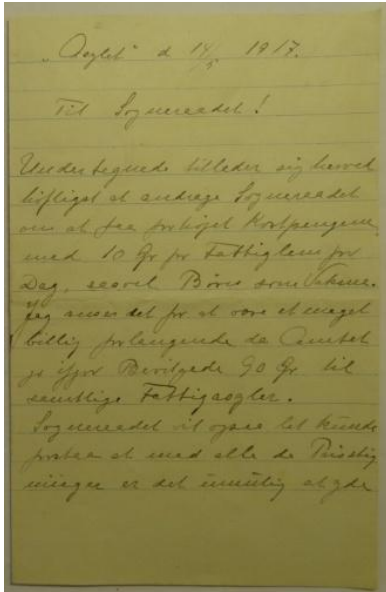 "Asylet" d 14/5 1917.
Til Sogneraadet!
Undertegnede tillader sig herved
høfligst at andrage Sogneraadet
om at faa forhøjet Kostpengene
med 10 Ør pr Fattiglem pr
Dag, saavel Børn som Voksne.
Jeg anser det for at være et meget
billig forlangende da Amtet
jo ifjor Bevilgede 90 Ør til
samtlige Fattigasyler.
Sogneraadet vil ogsaa let kunde
forstaa at med alle de Prisstig
ninger er det umulig at yde